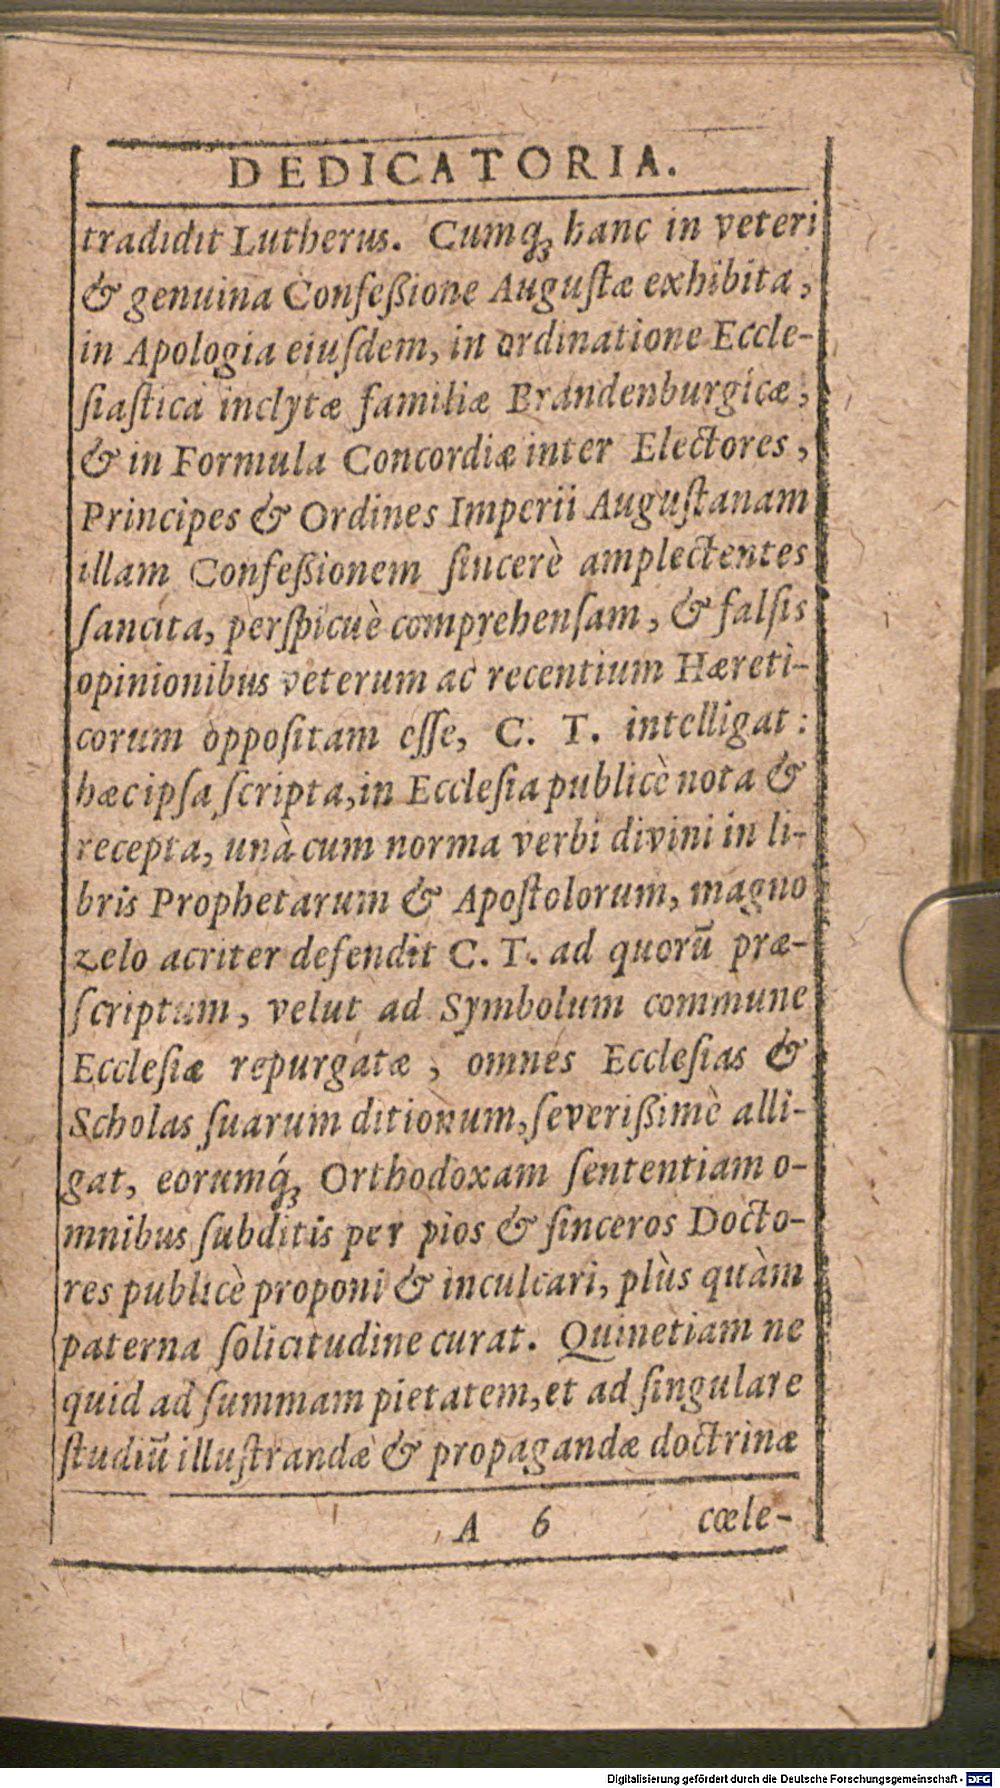 DEDICATORIA.
tradidit Lutherus. Cumq́ꝫ hanc in veteri
& genuina Confeßione Auguſtæ exhibita,
in Apologia eiuſdem, in ordinatione Eccle-
ſiaſtica inclytæ familiæ Brandenburgicæ,
& in Formula Concordiæ inter Electores,
Principes & Ordines Imperii Auguſtanam
illam Confeßionem ſincerè amplectentes
ſancita, perſpicuè comprehenſam, & falſis
opinionibus veterum ac recentium Hæreti-
corum oppoſitam eſſe, C. T. intelligat:
hæc ipſa ſcripta, in Eccleſia publicè nota &
recepta, unà cum norma verbi divini in li-
bris Prophetarum & Apoſtolorum, magno
zelo acriter defendit C. T. ad quorū præ-
ſcriptum, velut ad Symbolum commune
Eccleſiæ repurgatæ, omnes Eccleſias &
Scholas ſuarum ditionum, ſeverißimè alli-
gat, eorumq́ꝫ Orthodoxam ſententiam o-
mnibus ſubditis per pios & ſinceros Docto-
res publicè proponi & inculcari, plùs quàm
paterna ſolicitudine curat. Quinetiam ne
quid ad ſummam pietatem, et ad ſingulare
ſtudiū illuſtrandæ & propagandæ doctrinæ
A 6 cœle-
Digitalisierung gefördert durch die Deutsche Forschungsgemeinschaft - DFG